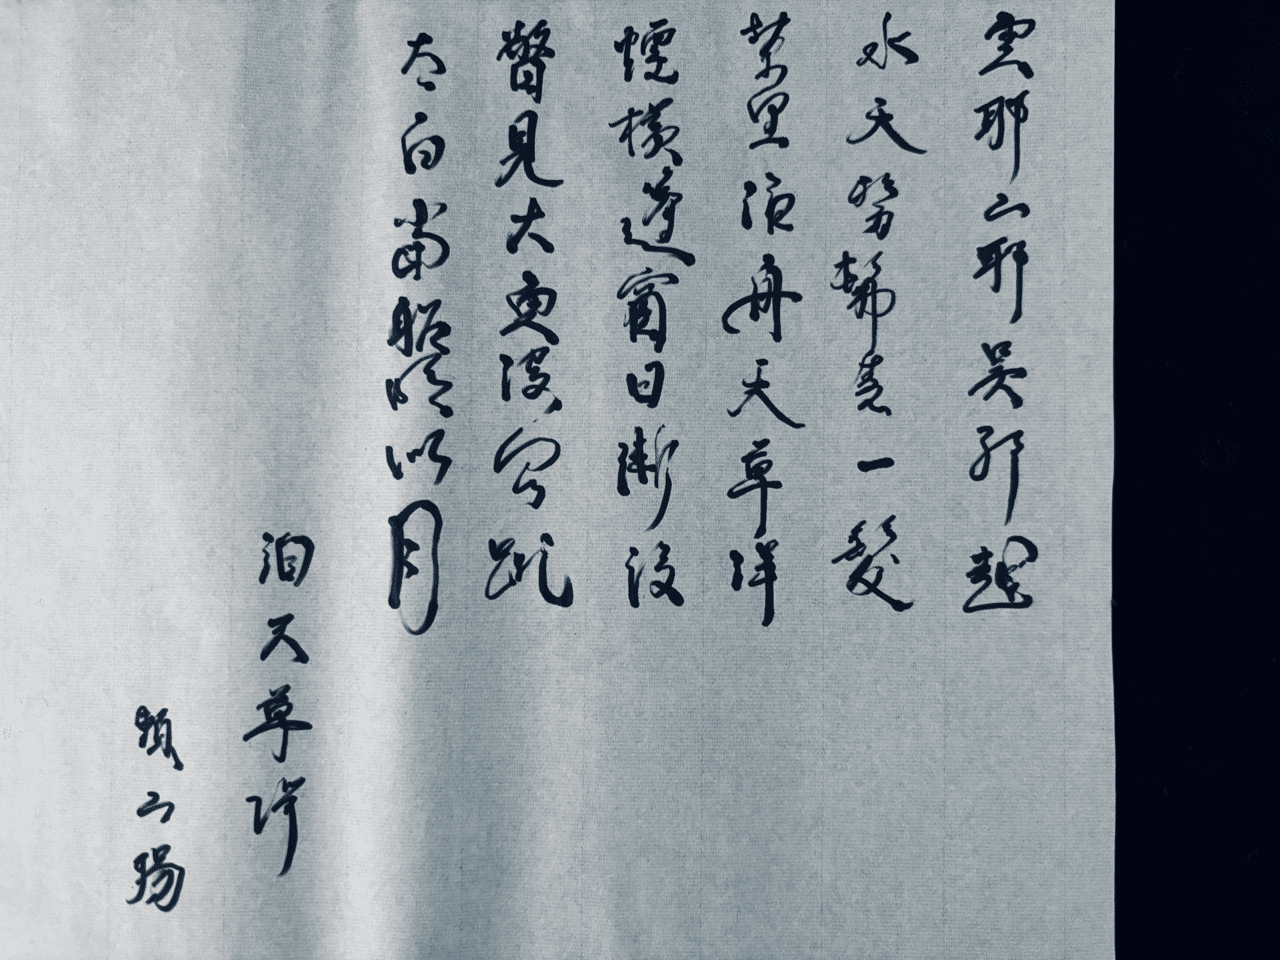 雲耶山耶吳耶越
水天髣髴青一髮
萬里泊舟天草洋
煙橫篷窗日漸沒
瞥見大魚波間跳
太白當船明似月
泊天草洋
賴山陽